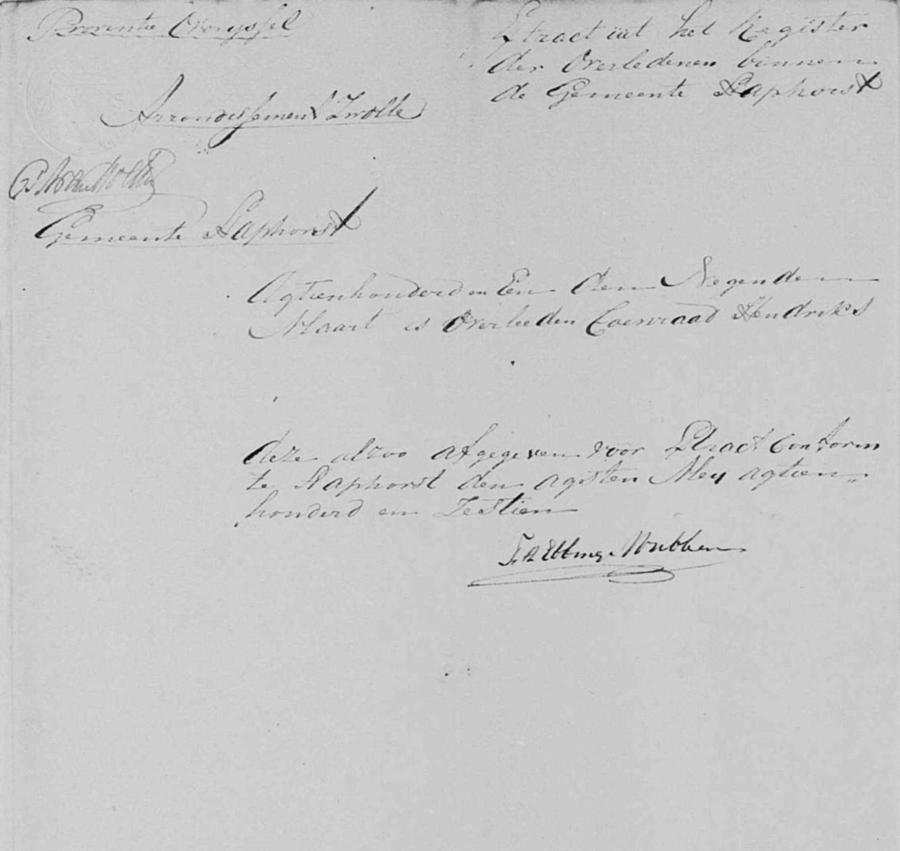 Proventie Overyssel
Etract uit het Register
der Overledenen binnen
de Gemeente Staphorst
Arrondissement Zwolle
Gemeente Staphorst
Agtienhonderd en Een den Negenden
Maart is Overleeden Coenraad Hendriks
deze alzoo afgegeven voor Etract Conform
te Staphorst den agtsten Mey agtien
honderd en Zestien
F A Ebbinge Wubben